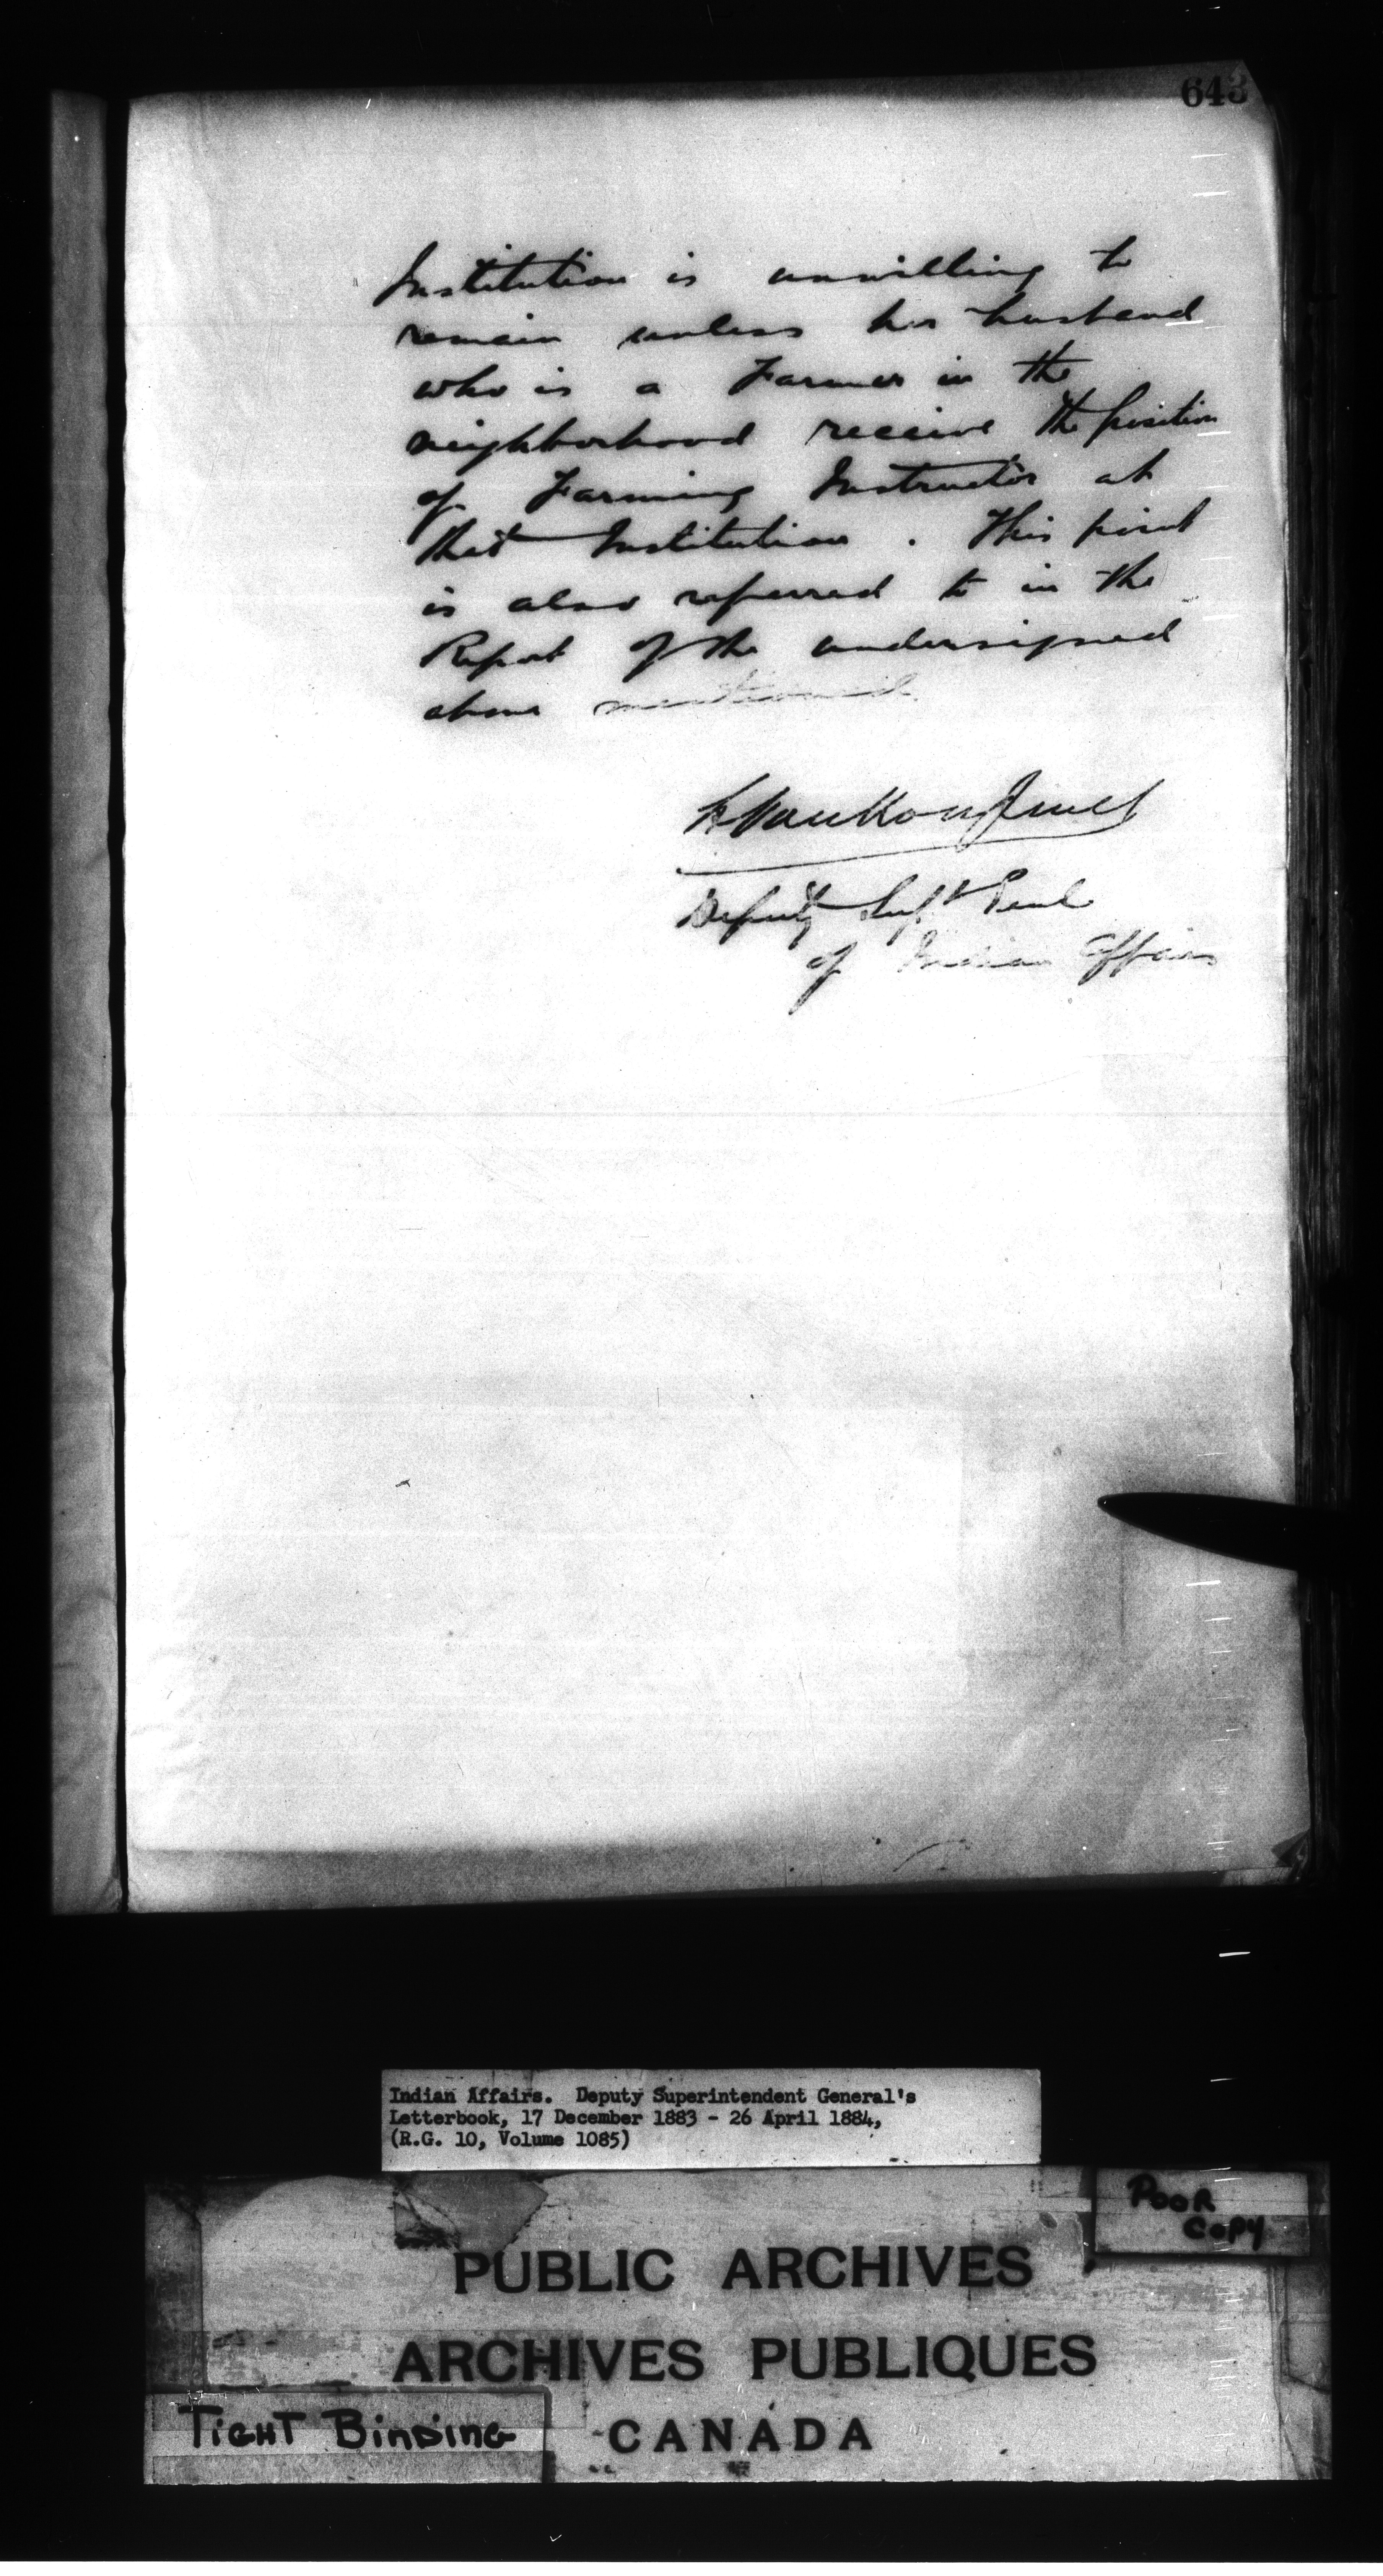 643
Institution is unwilling to
remain unless her husband
who is a Farmer in the
neighborhood receive the position
of Farming Instructor at
that Institution. This point
is also referred to in the
Report of the undersigned
above mentioned.
L Vankoughnet
Deputy Supt Genl
of Indian Affairs
Indian Affairs. Deputy Superintendent General's
Letterbook, 17 December 1883 - 26 April 1884,
(R.G. 10, Volume 1085)
POOR
COPY
PUBLIC ARCHIVES
ARCHIVES PUBLIQUES
TIGHT BINDING
CANADA